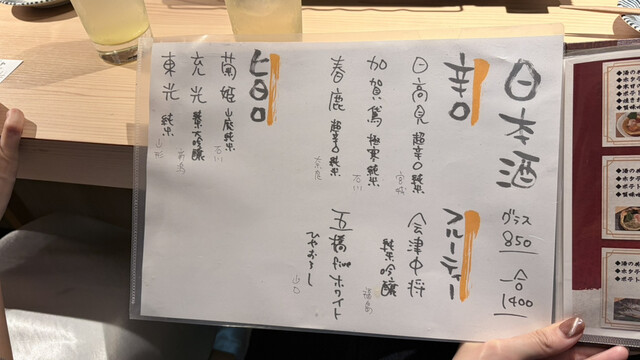 日本酒
グラス
850
一合
1400
辛口
日高見 超辛口純米
宮城
加賀鳶 極寒純米
石川
春鹿 超辛口純米
奈良
フルーティー
会津中将
純米吟醸
福島
五橋 fiveホワイト
ひやおろし
山口
旨口
菊姫 山廃純米
石川
充光 純米大吟醸
東光 純米
山形